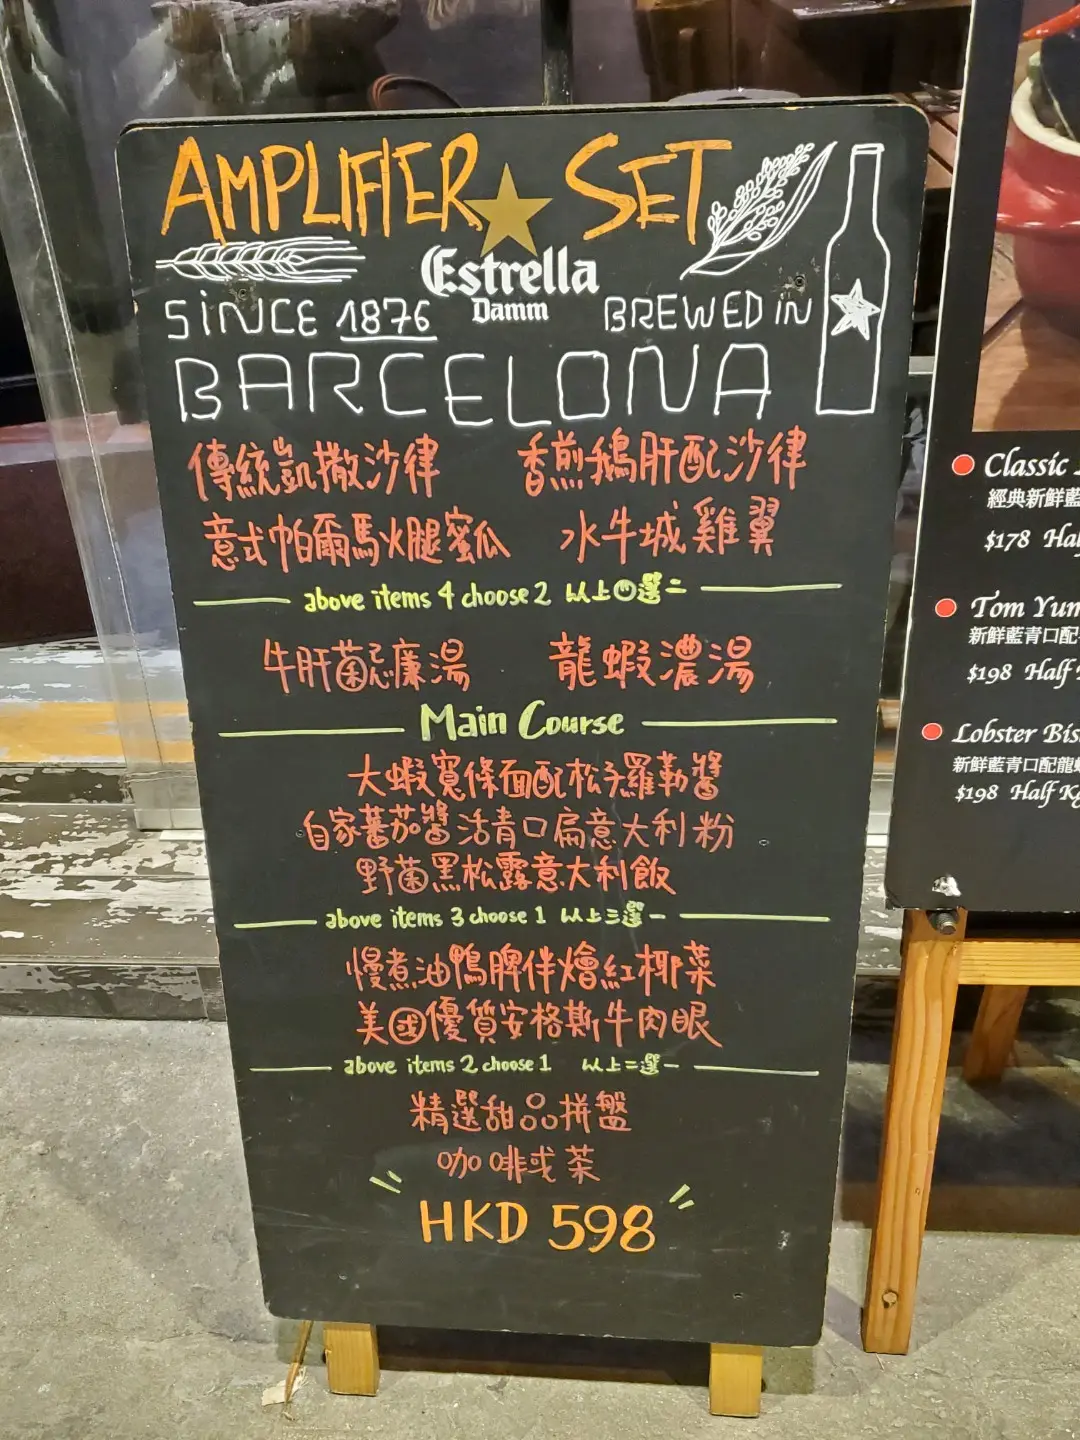 AMPLIFIER SET
Estrella
Damm
SINCE 1876 BREWED IN
BARCELONA
傳統凱撒沙律 香煎鵝肝配沙律
意式帕爾馬火腿蜜瓜 水牛城雞翼
above items 4 choose 2 以上四選二
牛肝菌忌廉湯 龍蝦濃湯
Main Course
大蝦寬條面配松子羅勒醬
自家蕃茄醬活青口扁意大利粉
野菌黑松露意大利飯
above items 3 choose 1 以上三選一
慢煮油鴨脾伴燴紅椰菜
美國優質安格斯牛肉眼
above items 2 choose 1 以上二選一
精選甜品拼盤
咖啡或茶
HKD 598
Classic
經典新鮮藍
$178 Hal
Tom Yum
新鮮藍青口配
$198 Half
Lobster Bis
新鮮藍青口配龍
$198 Half Kg